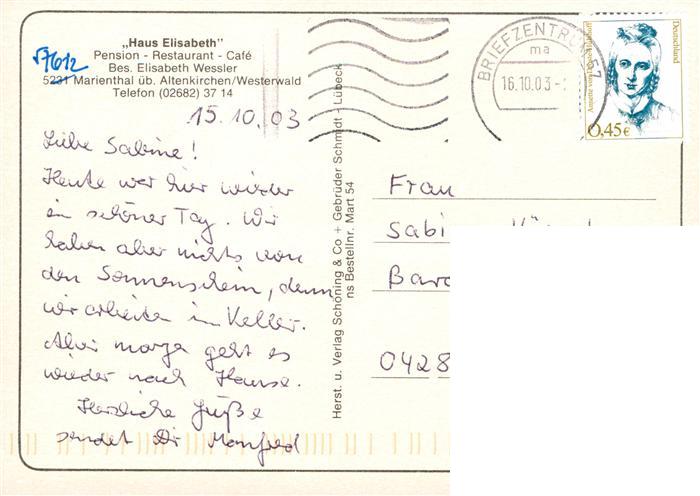 „Haus Elisabeth"
Pension - Restaurant - Café
Bes. Elisabeth Wessler
57612
5231 Marienthal üb. Altenkirchen/Westerwald
Telefon (02682) 37 14
15.10.03
Liebe Sabine!
Heute war hier wieder
ein schöner Tag. Wir
haben aber nichts von
dem Sonnenschein, denn
wir arbeiten im Keller.
Aber morgen geht es
wieder nach Hause.
Herzliche Grüße
sendet Dir Manfred
Herst. u. Verlag Schöning & Co + Gebrüder Schmidt - Lübeck
ns Bestellnr. Mart 54
BRIEFZENTRUM 57
ma
16.10.03
Deutschland
0,45€
Frau
Sabi
Bard
0428